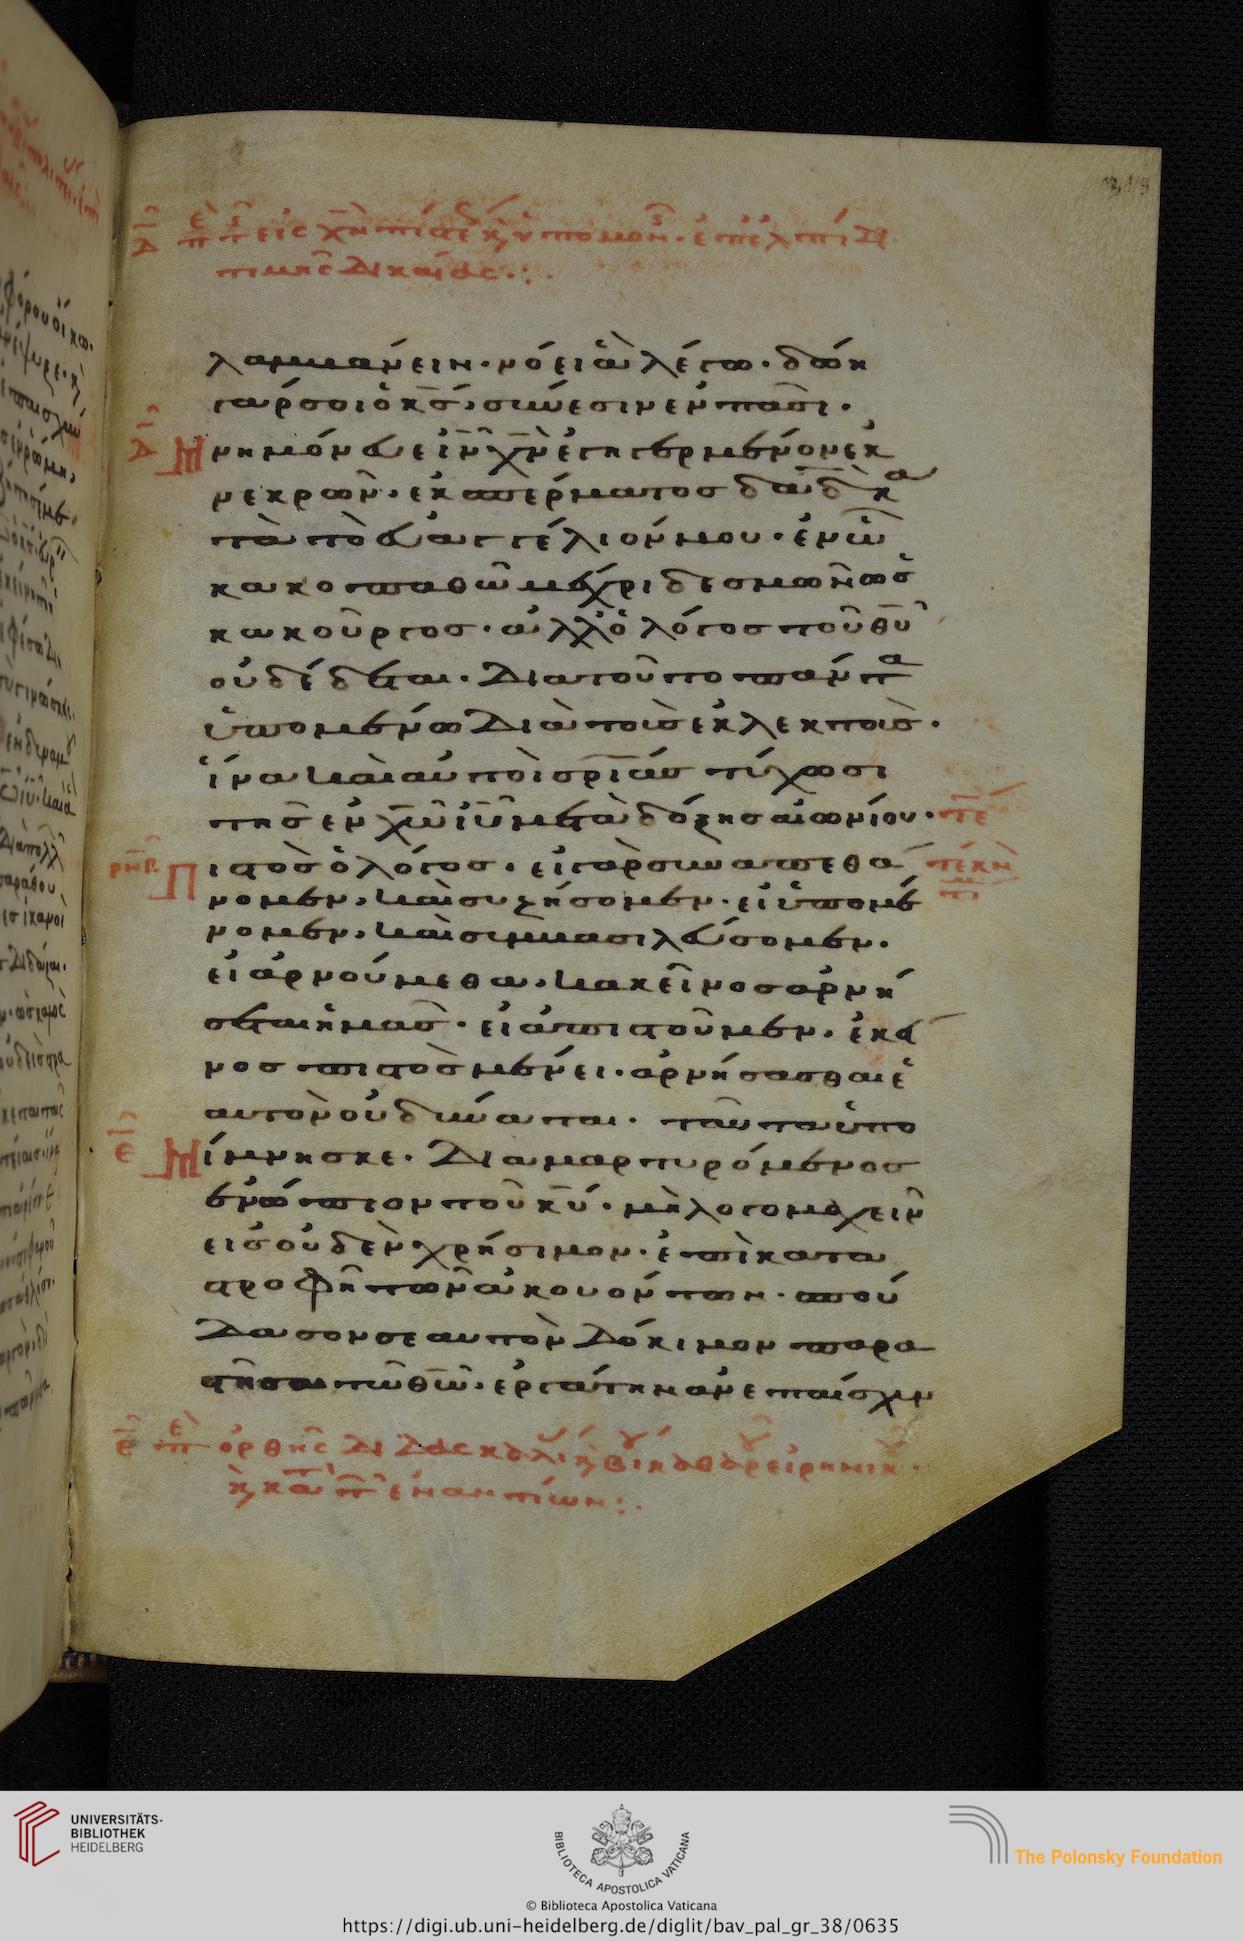 λαμβάνειν· νόει ἃ λέγω· δώη
γάρ σοι ὁ κ̅ς̅, σύνεσιν ἐν πᾶσι·
Μνημόνευε ἰ̅ν̅ χ̅ν̅ ἐγηγερμένον ἐκ
νεκρῶν· ἐκ σπέρματος δα̅δ̅ κα
τὰ τὸ εὐαγγέλιόν μου· ἐν ᾧ
κακοπαθῶ μέχρι δεσμῶν ὡς
κακοῦργος· ἀλλ' ὁ λόγος τοῦ θ̅υ̅
οὐ δέδεται· διὰ τοῦτο πάντα
ὑπομένω διὰ τοὺς ἐκλεκτούς·
ἵνα καὶ αὐτοὶ σ̅ρ̅ίας τύχωσι
τῆς ἐν χ̅ω̅ ἰ̅υ̅ μετὰ δόξης αἰωνίου·
Πιστὸς ὁ λόγος· εἰ γὰρ συναπεθά
νομεν, καὶ συζήσομεν· εἰ ὑπομέ
νομεν, καὶ συμβασιλεύσομεν·
εἰ ἀρνούμεθα, κακεῖνος ἀρνή
σεται ἡμᾶς· εἰ ἀπιστοῦμεν, ἐκεῖ
νος πιστὸς μένει· ἀρνήσασθαι ἑ
αυτὸν οὐ δύναται· ταῦτα ὑπο
μίμνησκε· διαμαρτυρόμενος
ἐνώπιον τοῦ κ̅υ̅· μὴ λογομαχεῖν
εἰς οὐδὲν χρήσιμον· ἐπὶ κατα
στροφῇ τῶν ἀκουόντων· σπού
δασον σεαυτὸν δόκιμον παρα
στῆσαι τῷ θ̅ω̅· ἐργάτην ἀνεπαίσχυν
UNIVERSITÄTS-
BIBLIOTHEK
HEIDELBERG
BIBLIOTECA APOSTOLICA VATICANA
The Polonsky Foundation
© Biblioteca Apostolica Vaticana
https://digi.ub.uni-heidelberg.de/diglit/bav_pal_gr_38/0635